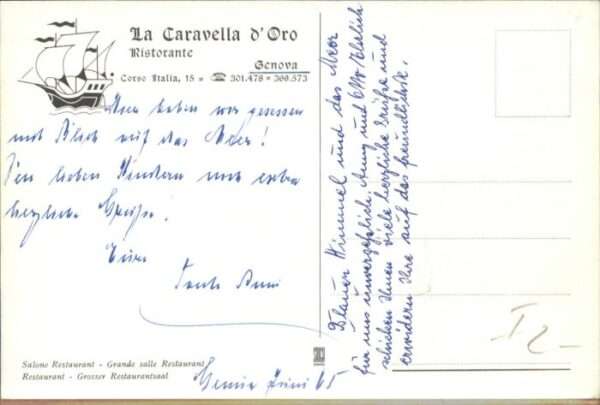 La Caravella d'Oro
Ristorante
Genova
Corso Italia, 15 - ☎ 301.478 - 366.573
Hier haben wir gegessen
mit Blick auf das Meer!
Den lieben Kindern noch extra
herzliche Grüße!
Eure
Tante Anni
Blauer Himmel und das Meer
für uns unvergeßlich. Anny und Ehrlich
schicken Ihnen viele herzliche Grüße und
erwidern Ihre auf das freundlichste.
Salone Restaurant - Grande salle Restaurant
Restaurant - Grosser Restaurantsaal
Juni 65
I 2-